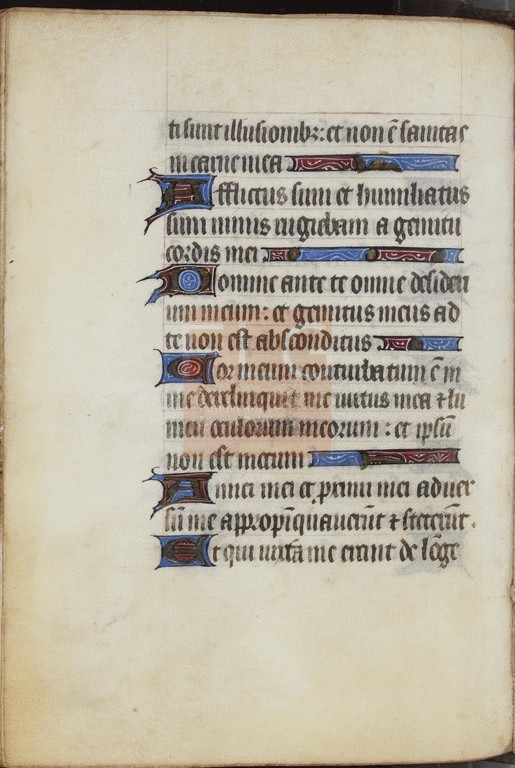 ti sunt illusionibꝫ: et non ē sanitas
in carne mea
Afflictus sum et humiliatus
sum nimis rugiebam a gemitu
cordis mei
Domine ante te omne desideri
um meum: et gemitus meus ad
te non est absconditus
Cor meum conturbatum ē in
me dereliquit me uirtus mea ⁊ lu
men oculorum meorum: et ipsū
non est mecum
Amici mei et ꝓximi mei aduer
sū me appropīquauerūt ⁊ steterūt.
Et qui iuxta me erant de lōge